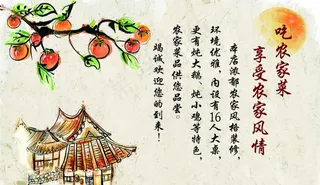 吃农家菜
享受农家风情
本店浓郁农家风格装修，
环境优雅，内设有16人大桌，
更有炖大鹅、炖小鸡等特色，
农家菜品供您品尝。
竭诚欢迎您的到来！